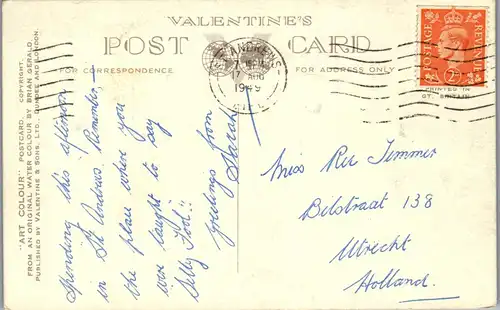 VALENTINE'S
POST CARD
FOR CORRESPONDENCE
FOR ADDRESS ONLY
ST. ANDREWS
17 AUG
1949
FIFE
POSTAGE
REVENUE
2D
PRINTED IN
GT. BRITAIN
"ART COLOUR" POSTCARD. COPYRIGHT.
FROM AN ORIGINAL WATER COLOUR BY BRIAN GERALD
PUBLISHED BY VALENTINE & SONS, LTD., DUNDEE AND LONDON.
Spending this afternoon
in St Andrews. Remember,
the place where you
were taught to say
Silly Fool!!
greetings from
Sarah
Miss Rie Timmer
Belstraat 138
Utrecht
Holland.